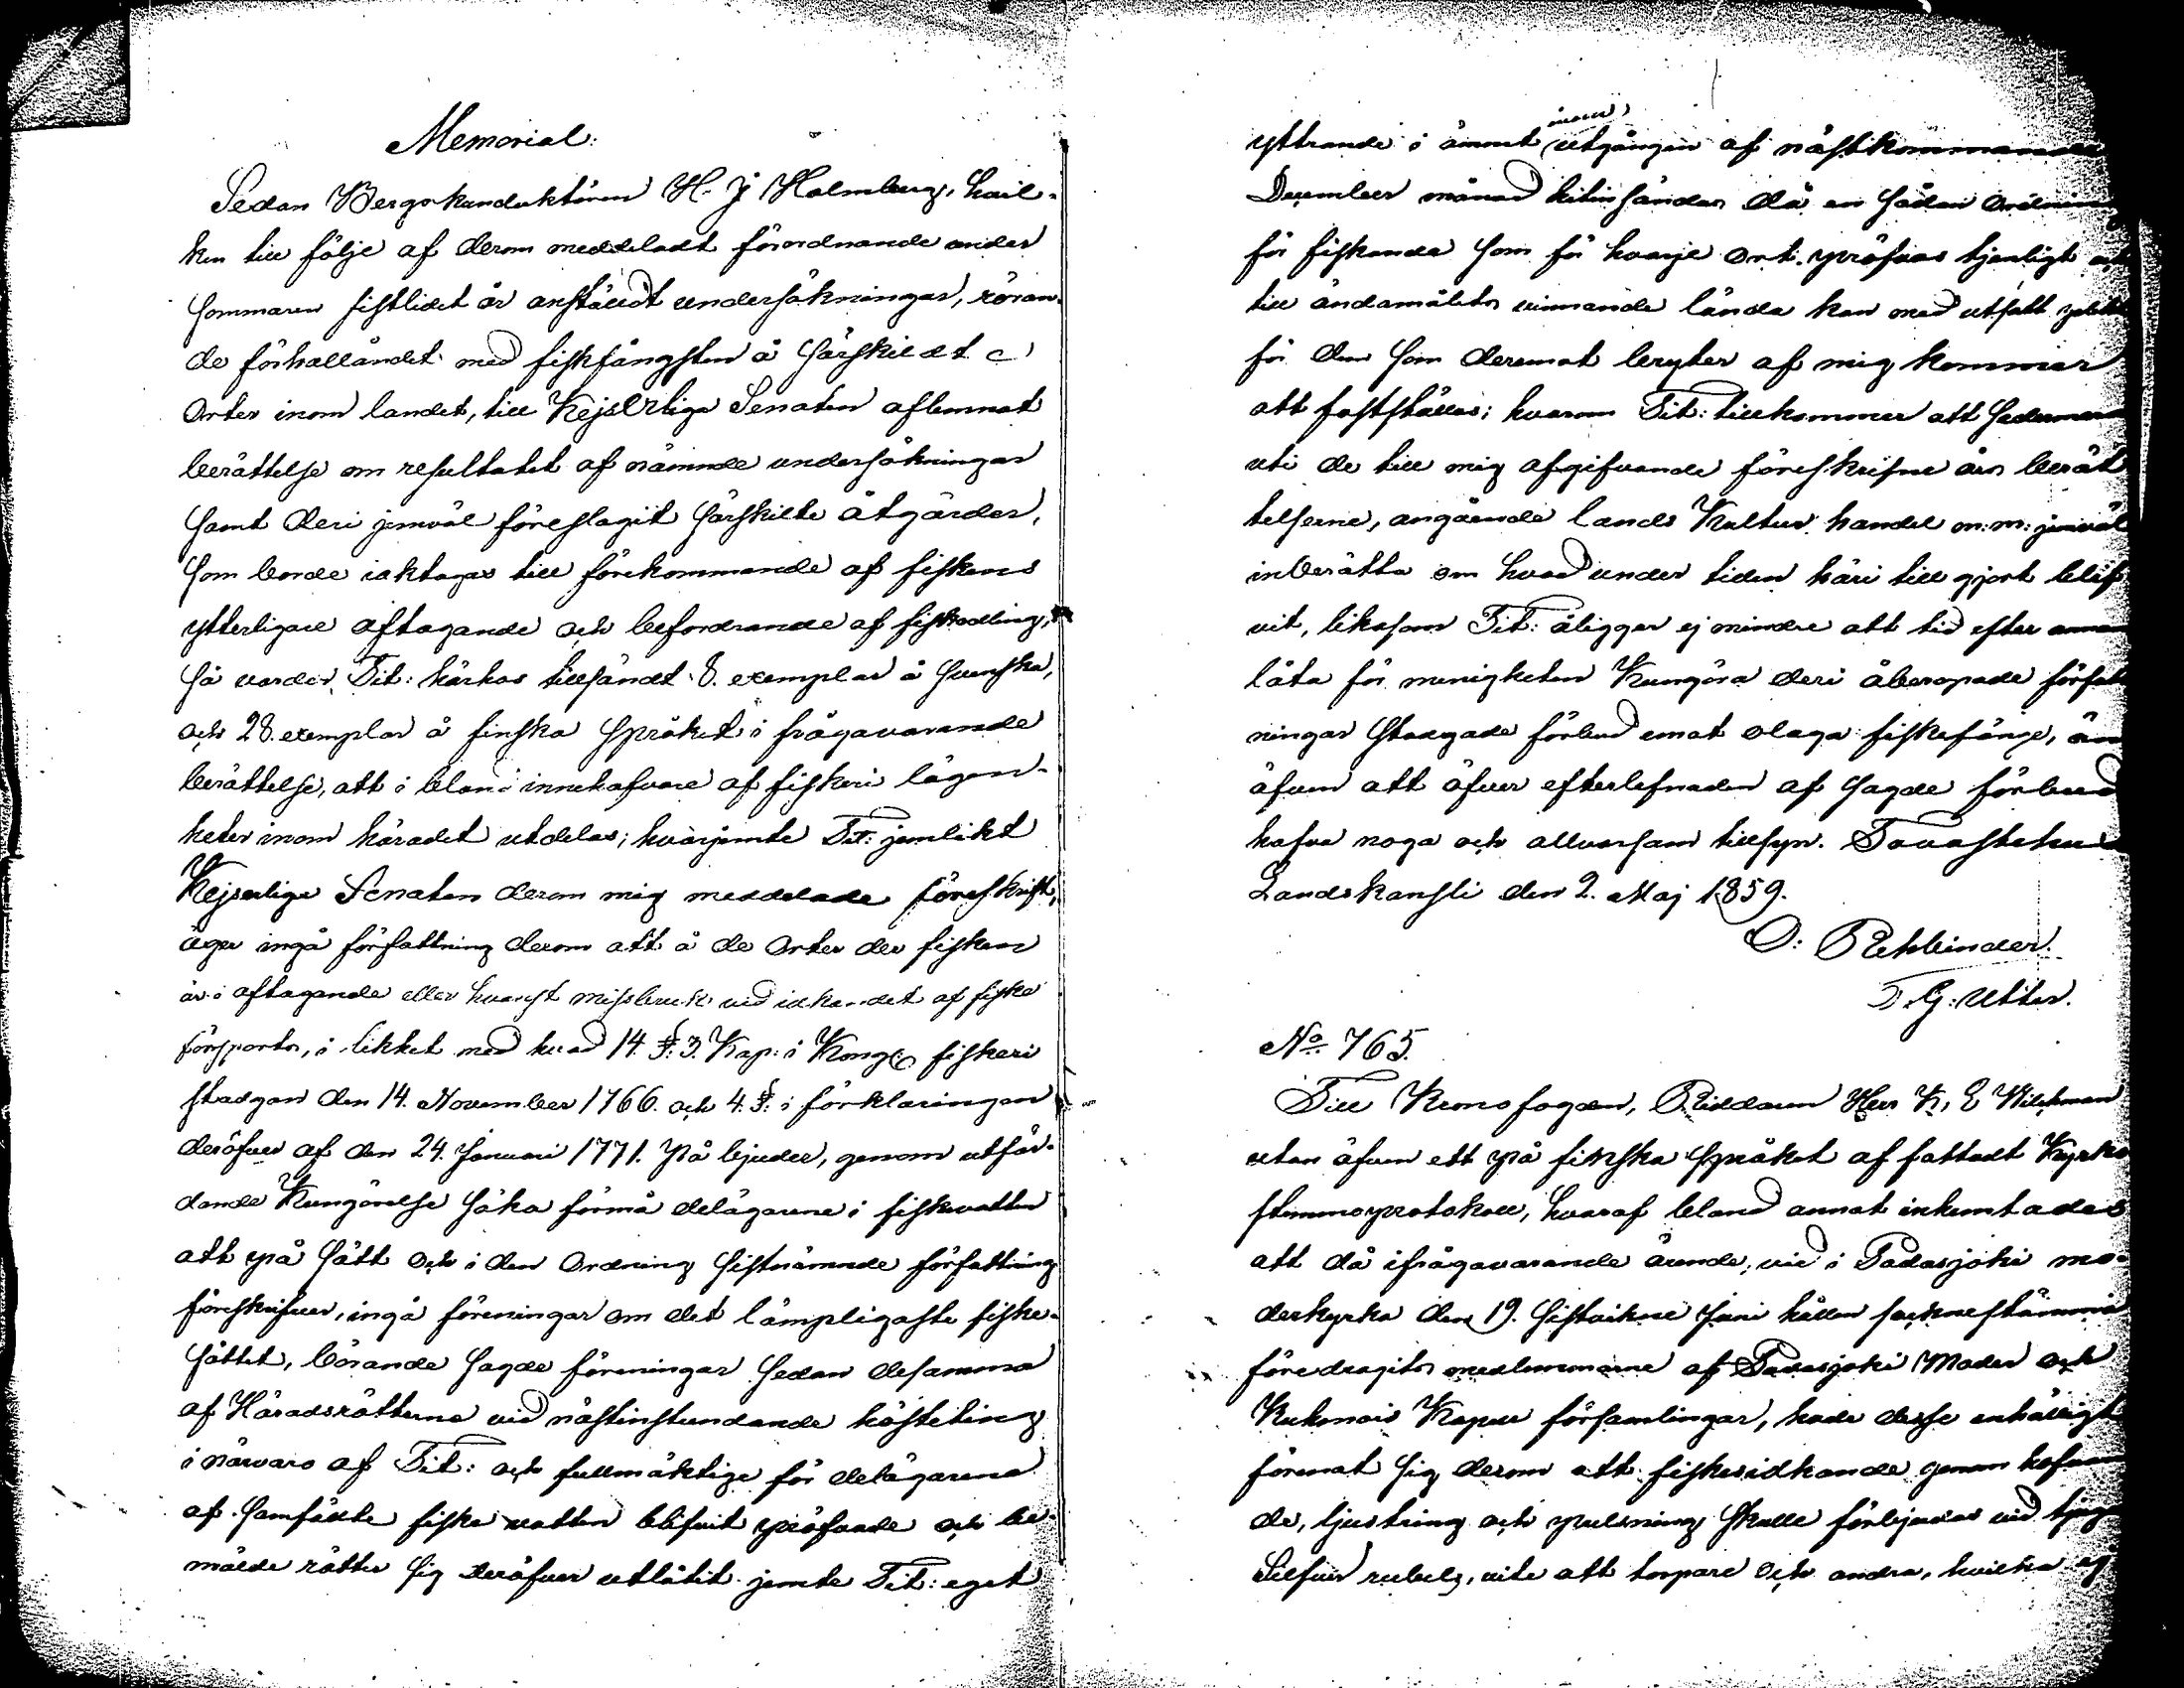 Memorial:
Sedan Bergskonduktören H. J Holmberg, hvil-
ken till följe af derom meddeladt förordnande under
sommaren sistlidet år anställdt undersökningar, röran-
de förhållandet med fiskfångsten å särskildt
Orter inom landet, till Kejserliga Senaten aflemnat
berättelse om resultatet af nämnde undersökningar
samt deri jemväl föreslagit särskilte åtgärder,
som borde iakttagas till förekommande af fiskens
ytterligare aftagande och befordrande af fiskodling,
så varder Tit: härhos tillsändt 8. exemplar å svenska,
och 28. exemplar å finska språket i frågavarande
berättelse, att i bland innehafvare af fiskeri lägen-
heter inom häradet utdelas; hvarjemte Tit: jemlikt
Kejserliga Senaten derom mig meddelade föreskrift,
äger ingå författning derom att å de Orter der fisken
är i aftagande eller hvarest missbruk vid idkandet af fiske
försports, i likhet med hvad 14. §. 3. Kap: i Kongl. fiskeri
stadgan den 14. November 1766. och 4. §: i förklaringen
deröfver af den 24. Januari 1771. på bjuder, genom utfär-
dande Kungörelse söka förmå delägarene i fiskevatten
att på sätt och i den Ordning sistnämnde författning
föreskrifver, ingå föreningar om det lämpligaste fiske-
sättet, börande sagde föreningar sedan desamma
af Häradsrätterne vid nästinstundande hösteting
i närvaro af Tit: och fullmäktige för delägarene
af samfälte fiske vatten blifvit pröfvade och be-
mälde rätter sig deröfver utlåtit jemte Tit: eget
yttrande i ämnet inom utgången af nästkommande
December månad hitinsändas då en sådan Ordning
för fiskande som för hvarje Ort pröfvas tjenligt och
till ändamålets vinnande lända kan med utsatt
för den som deremot bryter af mig kommer
att fastställas; hvarom Tit: tillkommer att sedermera
uti de till mig afgifvande föreskrifne års berät
telserne, angående lands Kultur handel m: m: jemväl
inberätta om hvad under tiden häri till gjort blif
vit, likasom Tit: åligger ej mindre att tid efter annan
låta för menigheten Kungöra deri åberopade författ
ningar stadgade förbud emot olaga fiskefänge, än
äfven att öfver efterlefnaden af sagde förbud
hafva noga och allvarsam tillsyn. Tavastehus
Landskansli den 2. Maj 1859.
O: Rehbinder.
T. G: Utter.
No 765.
Till Kronofogden, Riddaren Herr K, E Wilckman
utan äfven ett på finska språket af fattadt Kyrko
stemmoprotokoll, hvaraf bland annat inhemtades
att då ifrågavarande ärende, vid i Padasjoki mo-
derkyrka den 19. sistvikne Juni hållen socknestämma
föredragits medlemmarne af Padasjoki Moder och
Kuhmois Kapell församlingar, hade desse enhälligt
förenat sig derom att fiskeidkande genom
de, ljustring och pulsning skulle förbjudas vid tjugu
Silfver rubels, vite att torpare och andra, hvilka ej